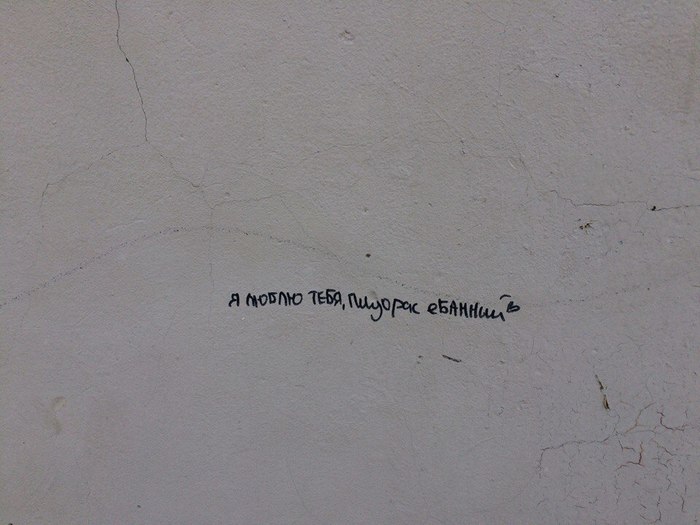 я люблю ТЕБЯ, пидорас еБАННий